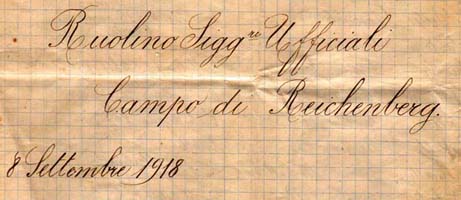 Ruolino Sigg.ri Ufficiali
Campo di Reichenberg.
8 Settembre 1918